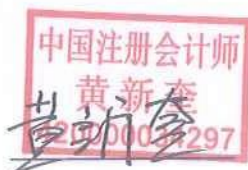 中国注册会计师
黄新奎
黄新奎